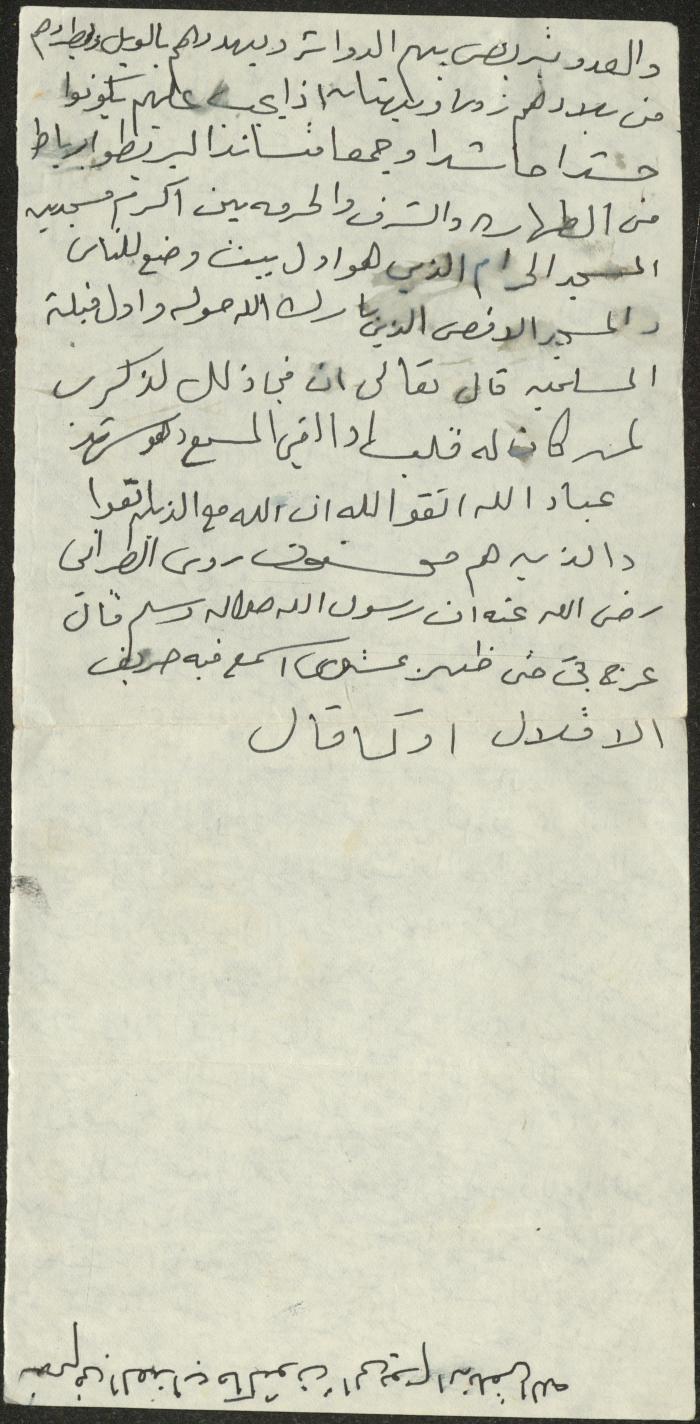 والعدو يتربص بهم الدوائر ويهددهم بالويل ويطردهم
من بلادهم زورا وبهتانا اذا يجب عليهم يكونوا
حشدا حاشدا وجمعا متساندا ليرتبطوا برباط
من الطهاره والشرف والحرمه بين اكرم مسجدين
المسجد الحرام الذي هو اول بيت وضع للناس
والمسجد الاقصى الذي بارك الله حوله واول قبلة
المسلمين قال تعالى ان في ذلك لذكرى
لمن كان له قلب او القى السمع وهو شهيد
عباد الله اتقوا الله ان الله مع الذين اتقوا
والذين هم محسنون روى الطبراني
رضى الله عنه ان رسول الله صلى الله وسلم قال
عرج بي حتى ظهرت بمستوى اسمع فيه صريف
الاقلام او كما قال